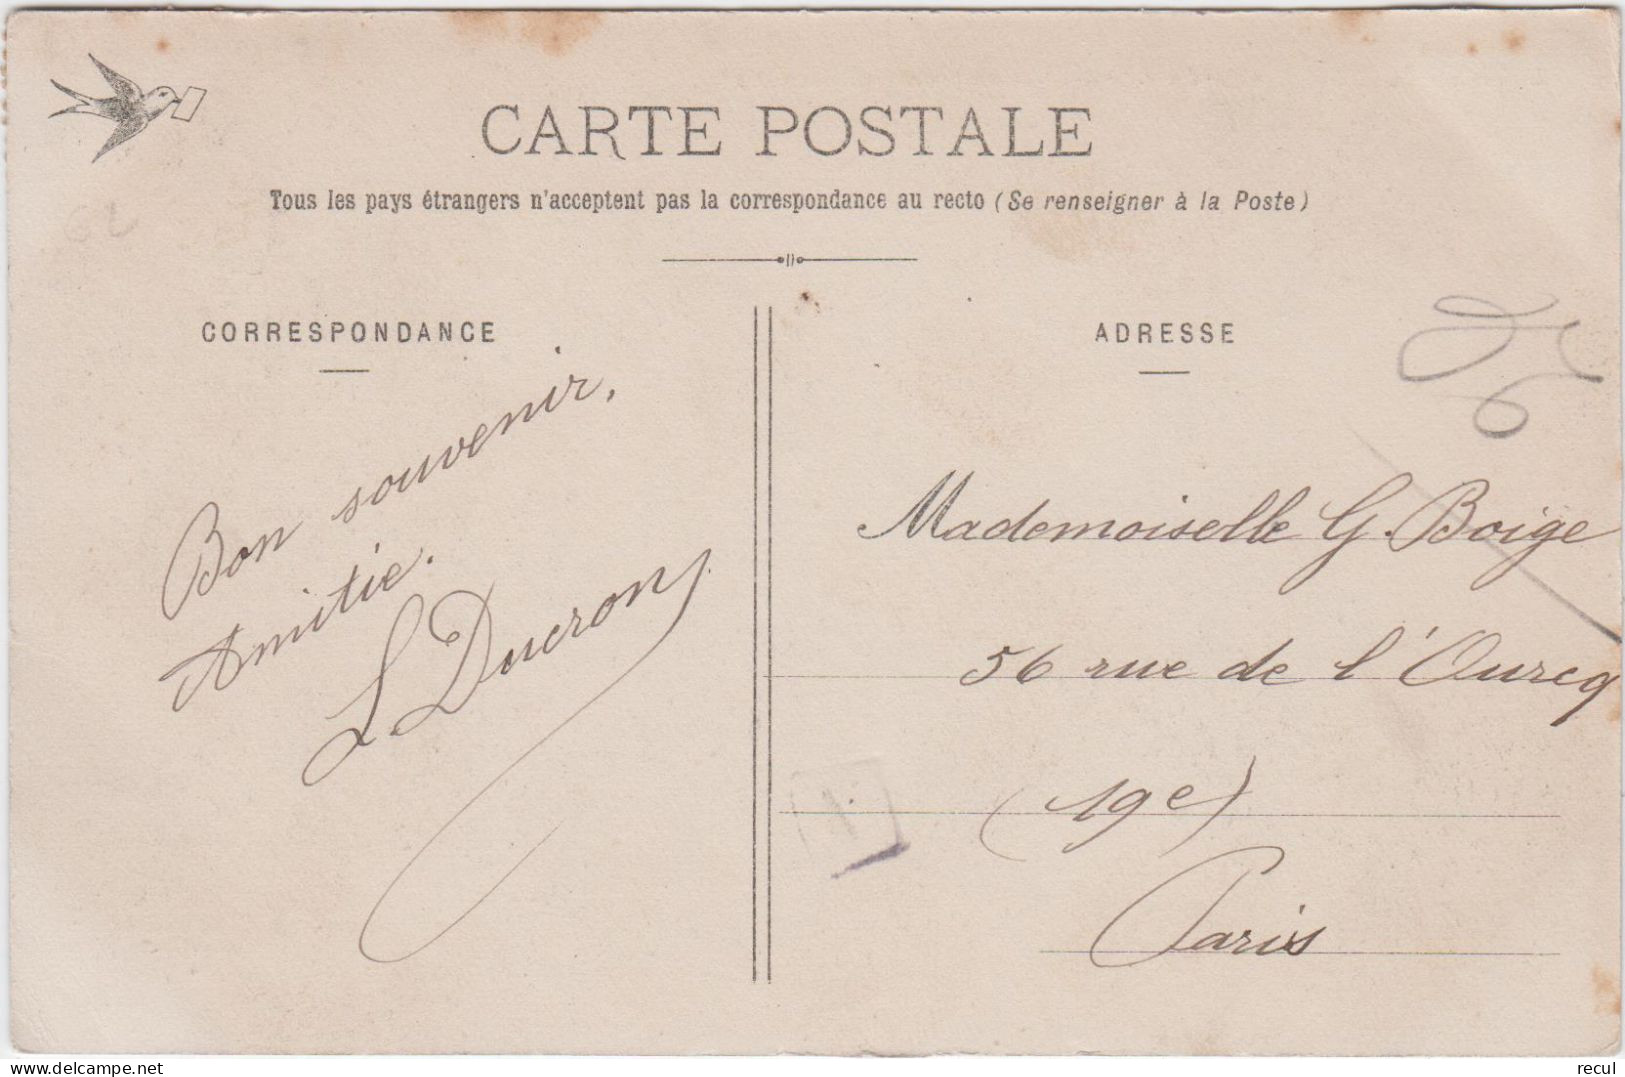 CARTE POSTALE
Tous les pays étrangers n'acceptent pas la correspondance au recto (Se renseigner à la Poste)
CORRESPONDANCE
Bon souvenir,
Amitié.
L. Ducron
ADRESSE
Mademoiselle G. Boige
56 rue de l'Ourcq
(19e)
Paris
www.delcampe.net
recul